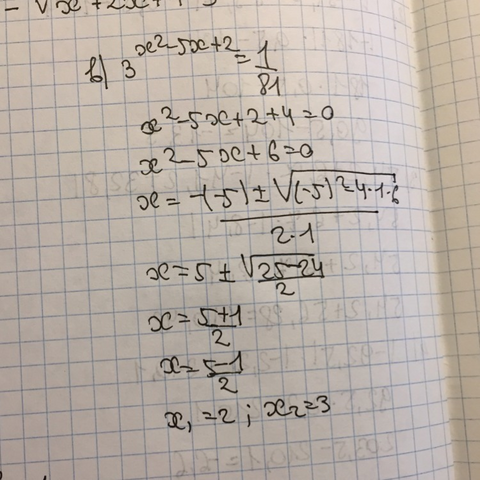 - √x + 2x +
в) 3^(x²-5x+2) = 1/81
x²-5x+2+4=0
x²-5x+6=0
x = (-(-5) ± √((-5)²-4·1·6))/(2·1)
x = 5 ± √(25-24)/2
x = (5+1)/2
x = (5-1)/2
x₁ = 2 ; x₂ = 3